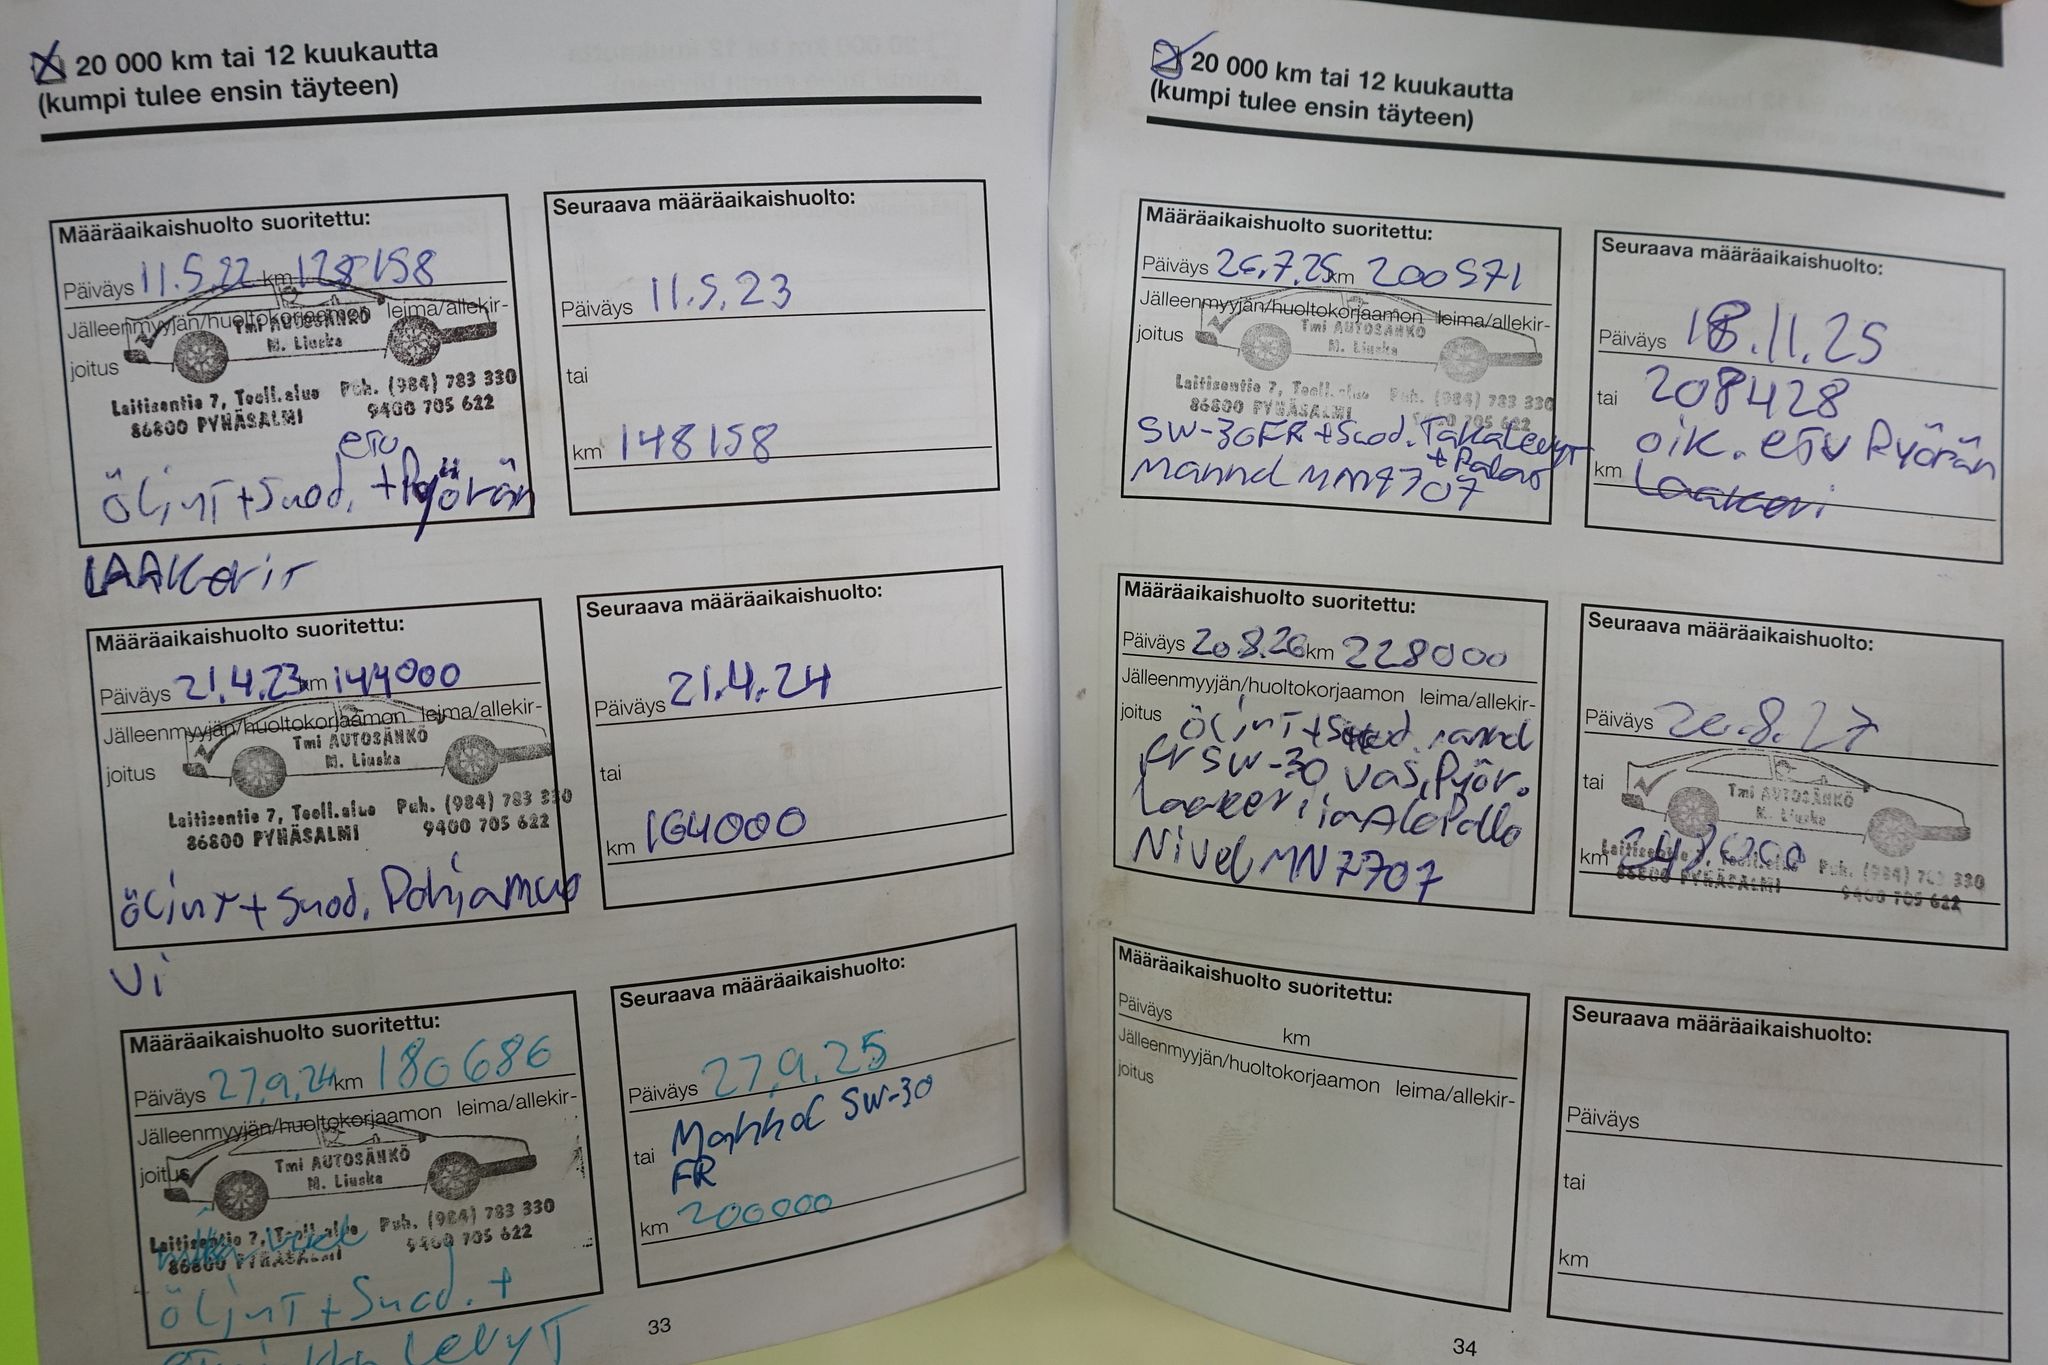 20 000 km tai 12 kuukautta
(kumpi tulee ensin täyteen)
Määräaikaishuolto suoritettu:
Päiväys 11.5.22 km 128158
Jälleenmyyjän/huoltokorjaamon leima/allekir-
joitus
Tmi AUTOSÄNKÖ
M. Liuska
Laitisentie 7, Teoll.alue Puh. (984) 783 330
86800 PYHÄSALMI 9400 705 622
etu
öljyt + Suod. + Pyörän
LAAKerit
Seuraava määräaikaishuolto:
Päiväys 11.5.23
tai
km 148158
Määräaikaishuolto suoritettu:
Päiväys 21.4.23 km 144000
Jälleenmyyjän/huoltokorjaamon leima/allekir-
joitus
Tmi AUTOSÄNKÖ
M. Liuska
Laitisentie 7, Teoll.alue Puh. (984) 783 330
86800 PYHÄSALMI 9400 705 622
öljyt + Suod. Pohjamuo
vi
Seuraava määräaikaishuolto:
Päiväys 21.4.24
tai
km 164000
Määräaikaishuolto suoritettu:
Päiväys 27.9.24 km 180686
Jälleenmyyjän/huoltokorjaamon leima/allekir-
joitus
Tmi AUTOSÄNKÖ
M. Liuska
Laitisentie 7, Teoll.alue Puh. (984) 783 330
86800 PYHÄSALMI 9400 705 622
öljyt + Suod. +
LevyT
Seuraava määräaikaishuolto:
Päiväys 27.9.25
tai Mannol 5W-30
FR
km 200000
33
20 000 km tai 12 kuukautta
(kumpi tulee ensin täyteen)
Määräaikaishuolto suoritettu:
Päiväys 26.7.25 km 200571
Jälleenmyyjän/huoltokorjaamon leima/allekir-
joitus
Tmi AUTOSÄNKÖ
M. Liuska
Laitisentie 7, Teoll.alue Puh. (984) 783 330
86800 PYHÄSALMI 9400 705 622
5W-30 FR + Suod. TakaLevyt
+ Palat
Mannol MN7707
Seuraava määräaikaishuolto:
Päiväys 18.11.25
tai 208428
oik. eTu Pyörän
km Laakeri
Määräaikaishuolto suoritettu:
Päiväys 20.8.26 km 228000
Jälleenmyyjän/huoltokorjaamon leima/allekir-
joitus öljyt + Suod. mannol
Fr 5W-30, vas. Pyör.
Laakeri ja AlaPallo
Nivel MN7707
Seuraava määräaikaishuolto:
Päiväys 20.8.27
tai
Tmi AUTOSÄNKÖ
M. Liuska
km
Laitisentie 7, Teoll.alue Puh. (984) 783 330
86800 PYHÄSALMI 9400 705 622
Määräaikaishuolto suoritettu:
Päiväys km
Jälleenmyyjän/huoltokorjaamon leima/allekir-
joitus
Seuraava määräaikaishuolto:
Päiväys
tai
km
34